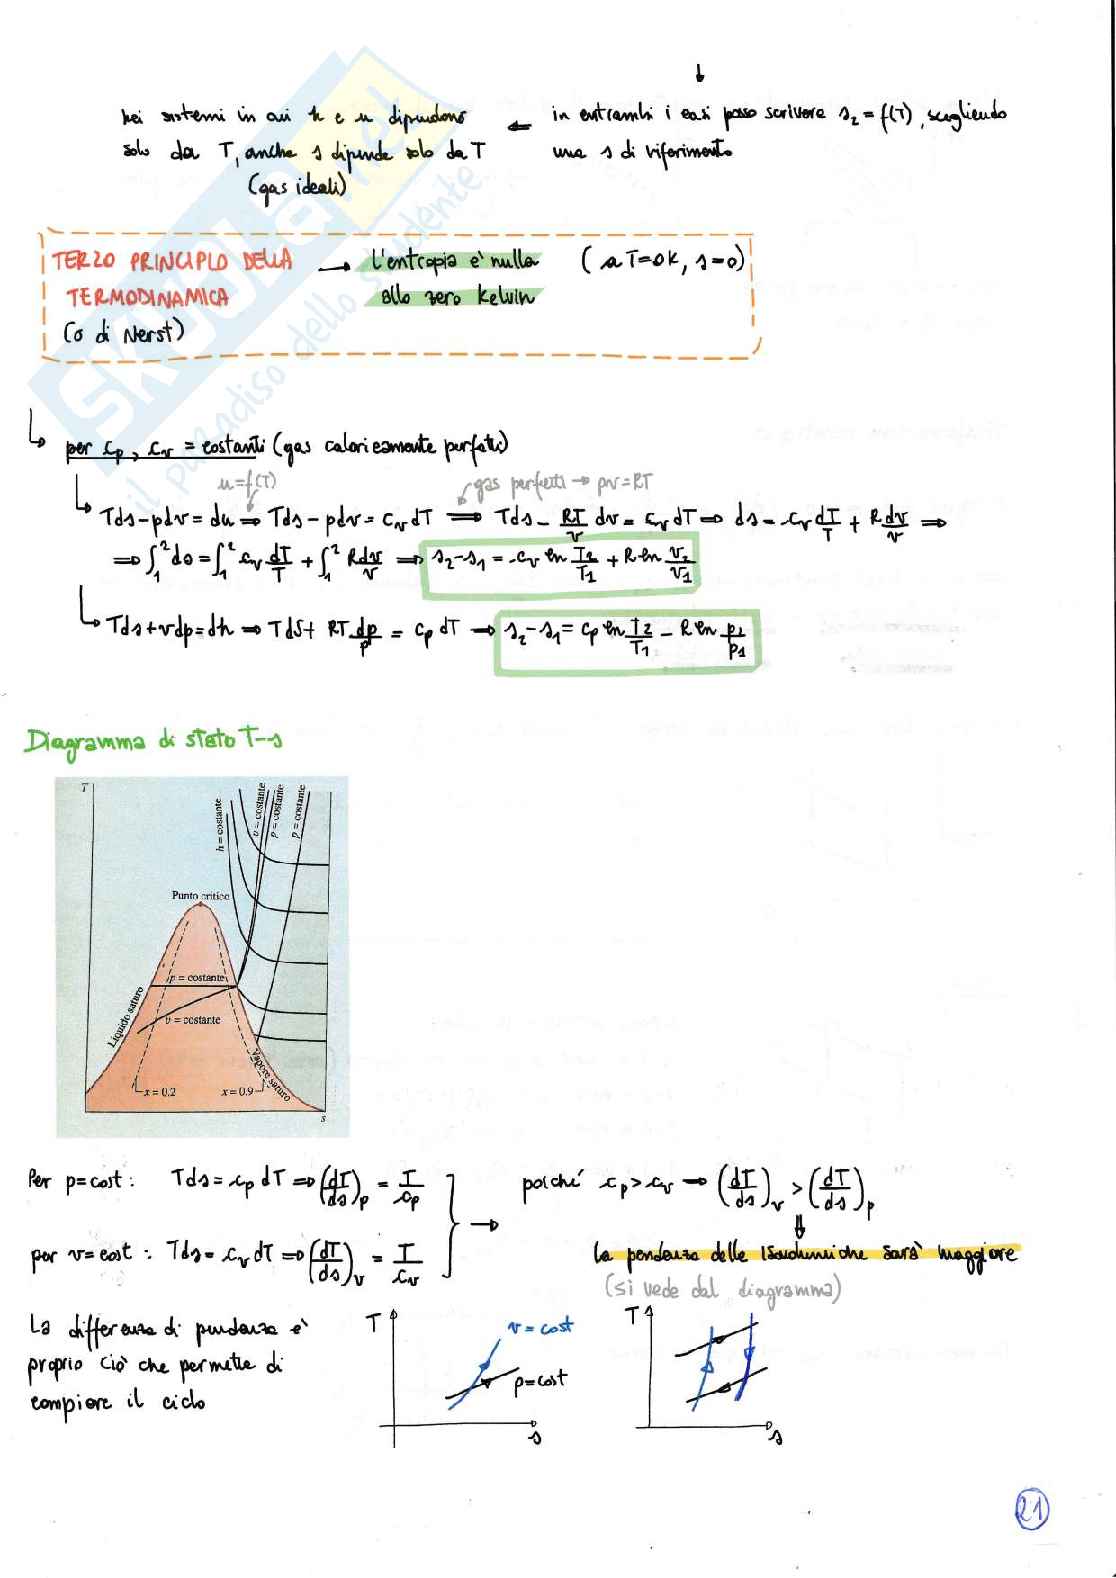 in entrambi i casi posso scrivere s₂ = f(T), scegliendo
una s di riferimento
nei sistemi in cui h e u dipendono
solo da T, anche s dipende solo da T
(gas ideali)
TERZO PRINCIPIO DELLA
TERMODINAMICA
(o di Nerst)
→ l'entropia è nulla
allo zero Kelvin
(a T=0K, s=0)
per cp, cv = costanti (gas caloricamente perfetti)
u=f(T)
gas perfetti → pv=RT
Tds-pdv = du ⇒ Tds-pdv = cv dT ⇒ Tds - RT/v dv = cv dT ⇒ ds = cv dT/T + R dv/v ⇒
⇒ ∫₁² ds = ∫₁² cv dT/T + ∫₁² R dv/v ⇒ s₂-s₁ = cv ln T₂/T₁ + R ln v₂/v₁
Tds+vdp=dh ⇒ Tds + RT dp/p = cp dT ⇒ s₂-s₁ = cp ln T₂/T₁ - R ln p₂/p₁
Diagramma di stato T-s
T
h = costante
v = costante
p = costante
p = costante
Punto critico
p = costante
v = costante
Liquido saturo
Vapore saturo
x = 0.2
x = 0.9
s
Per p=cost: Tds = cp dT ⇒ (dT/ds)p = T/cp
per v=cost: Tds = cv dT ⇒ (dT/ds)v = T/cv
poiché cp>cv → (dT/ds)v > (dT/ds)p
la pendenza delle isocore che sarà maggiore
(si vede dal diagramma)
La differenza di pendenza è
proprio ciò che permette di
compiere il ciclo
T
v = cost
p=cost
s
T
s
21
SKUOLA.net
il paradiso dello studente